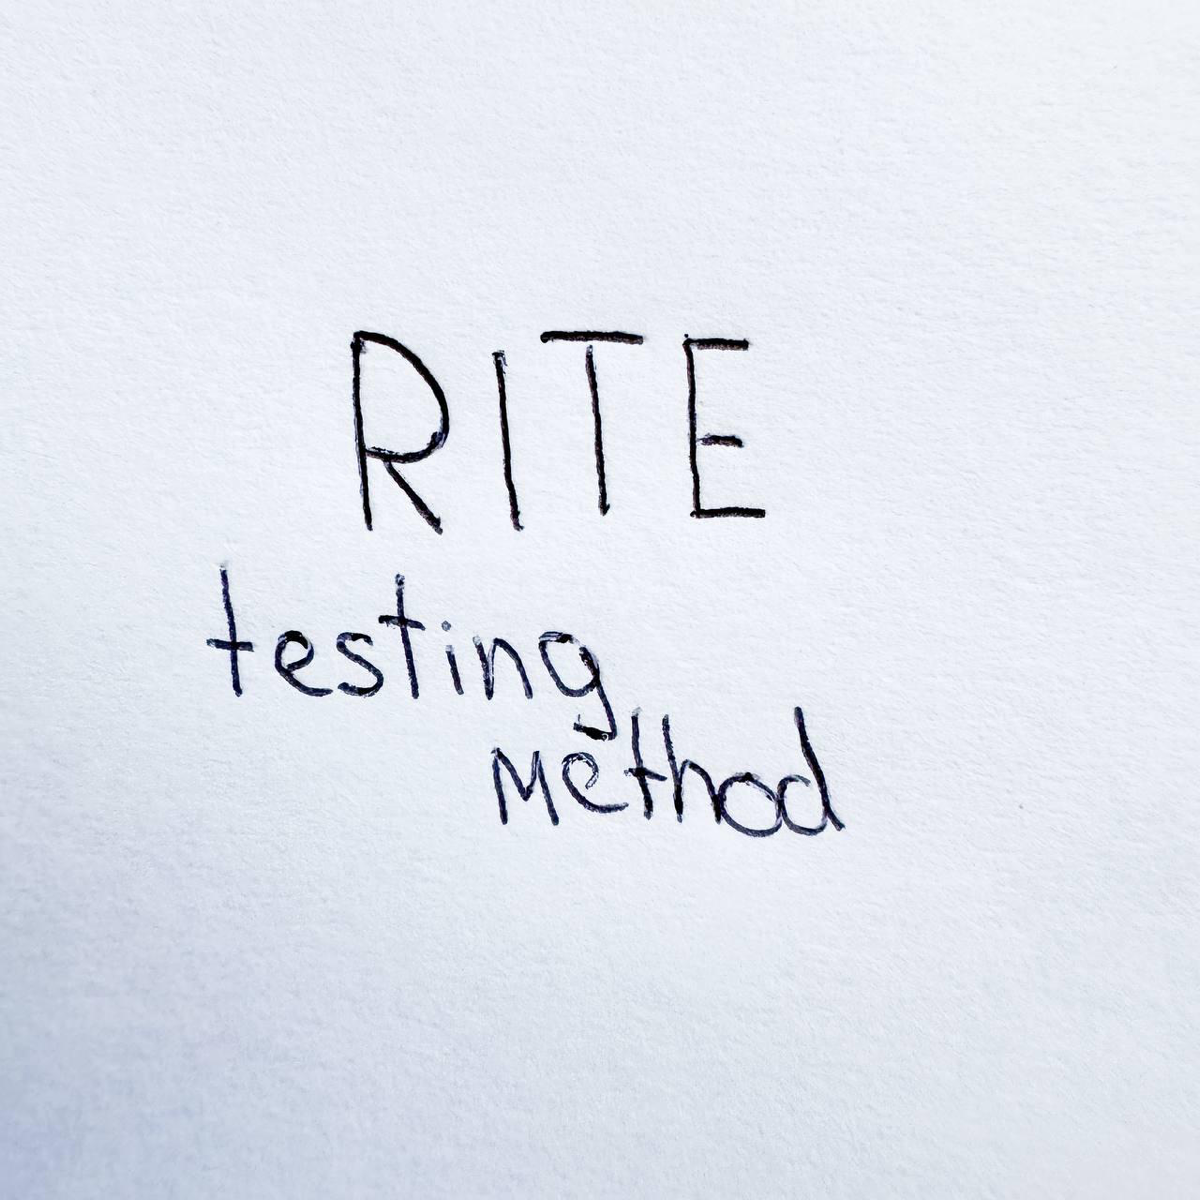 RITE
testing
method